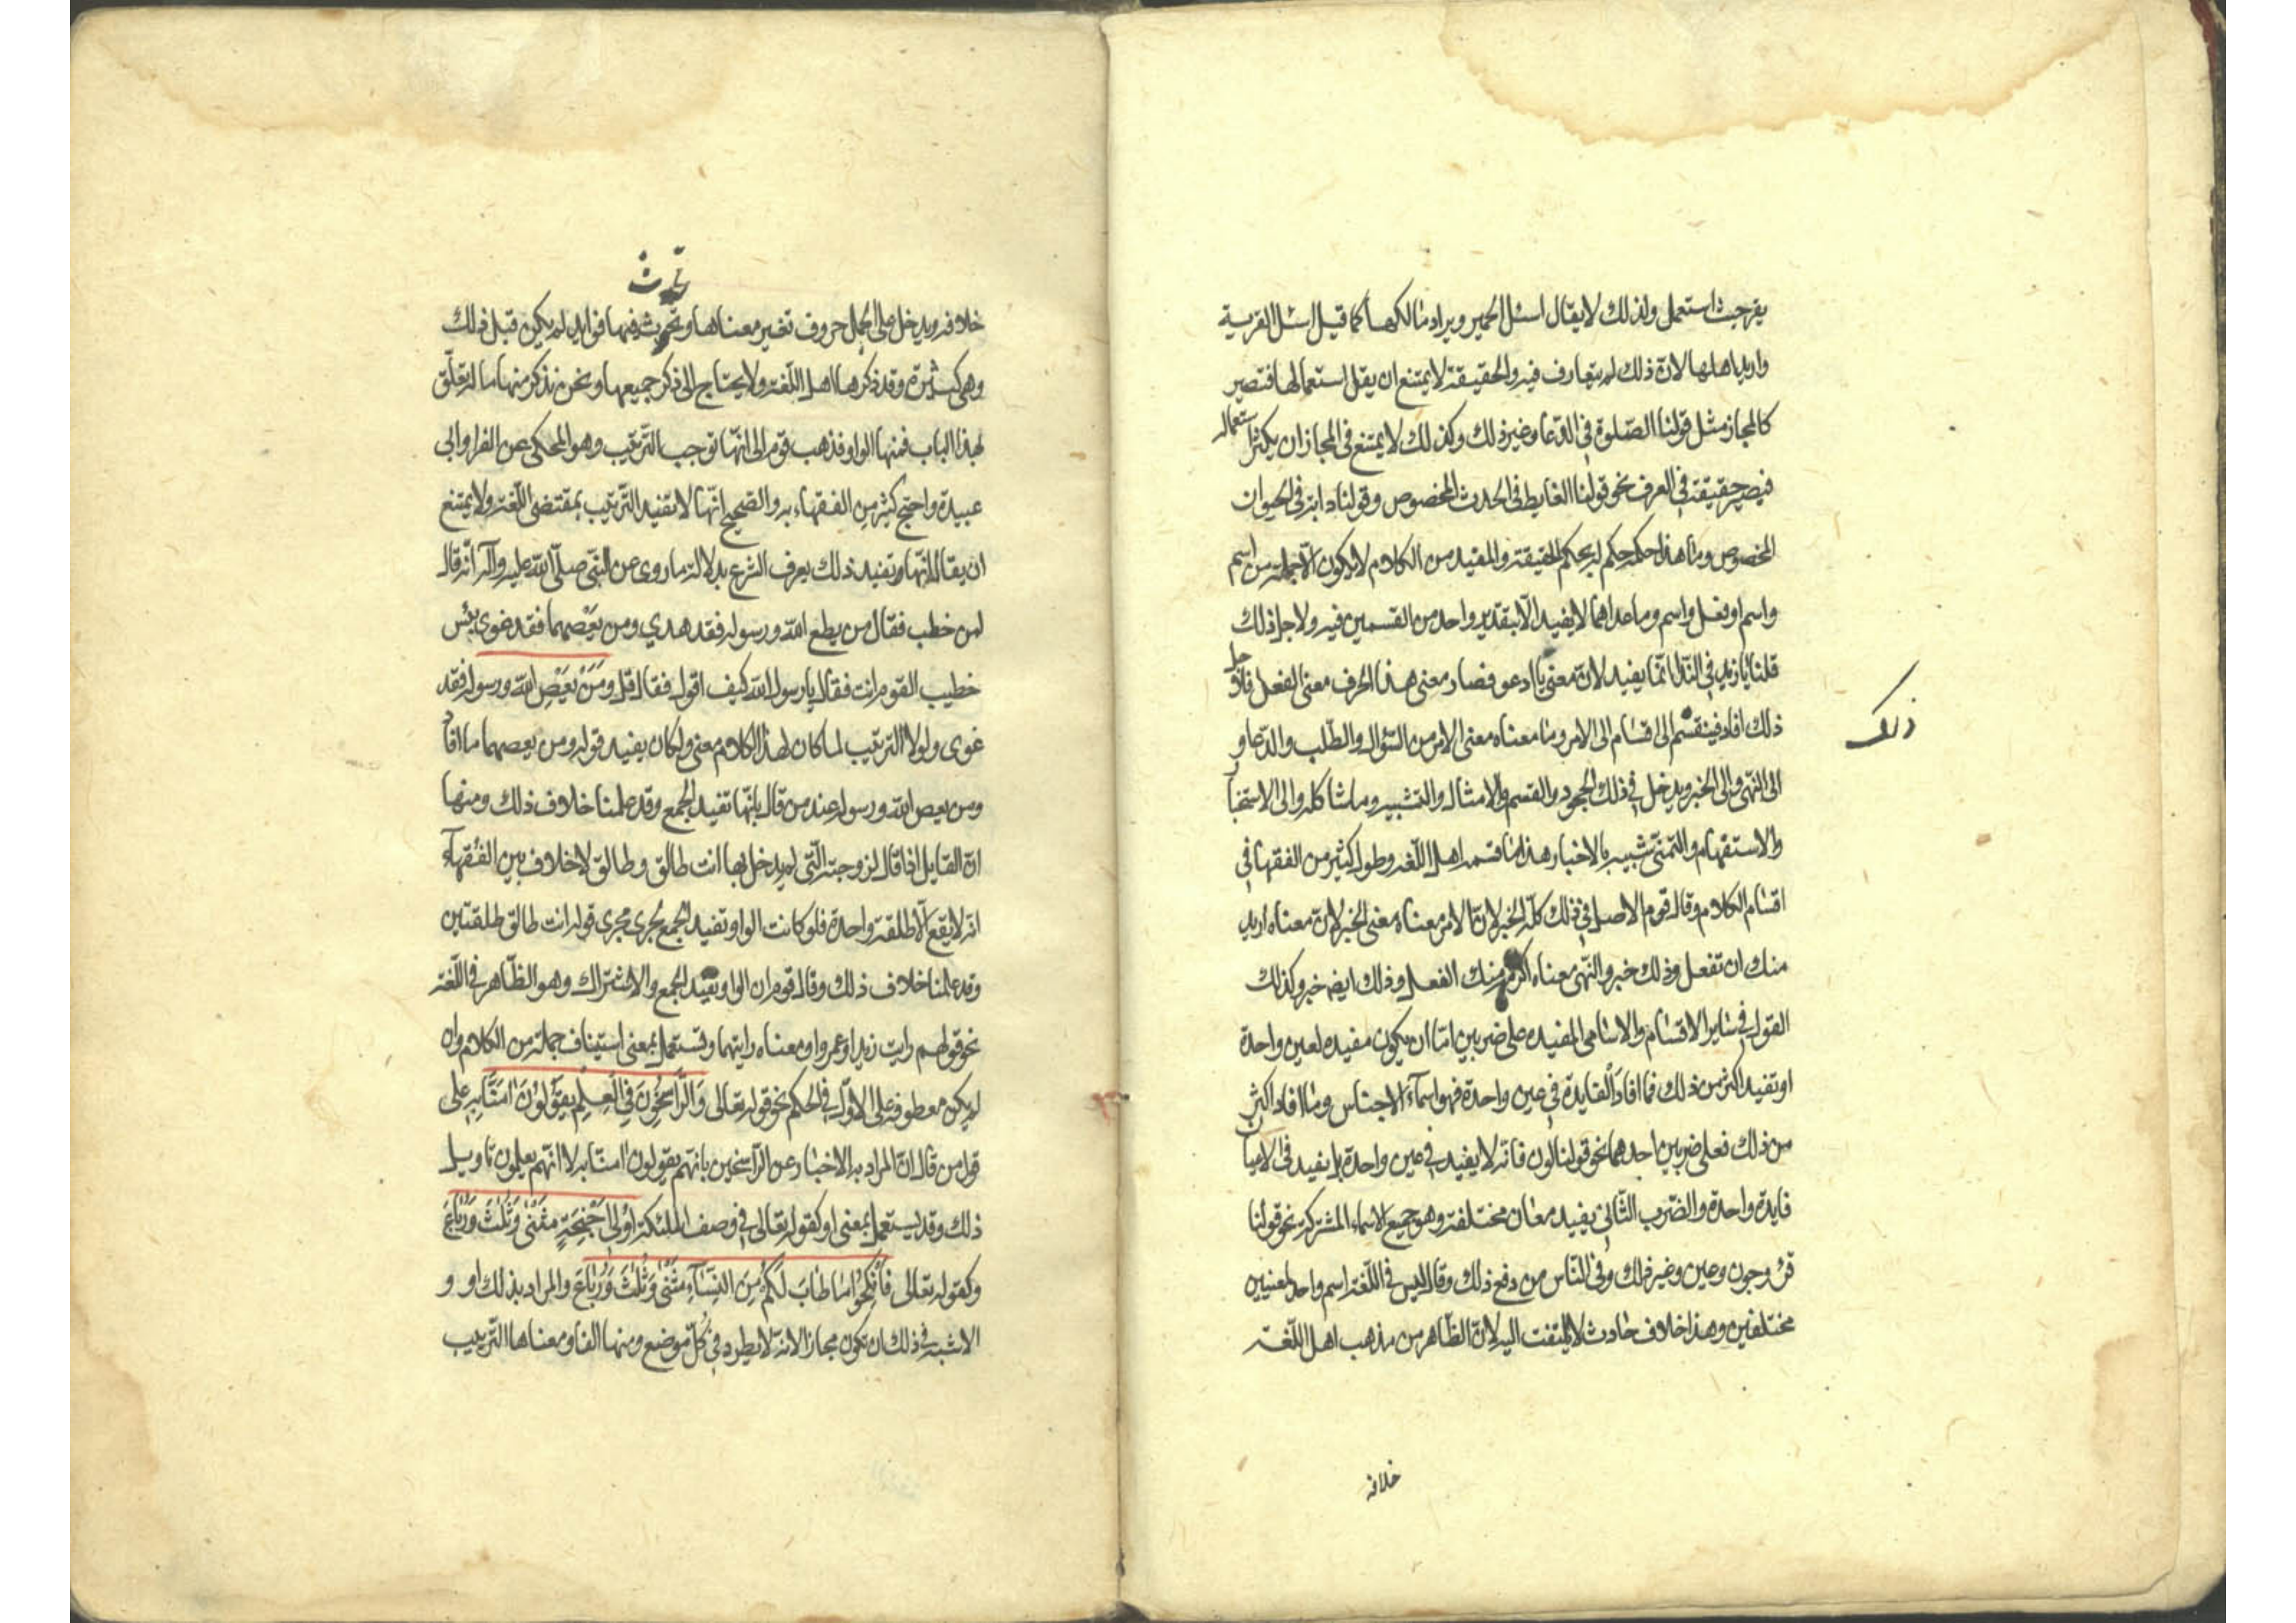 يقرحيث استعمل ولذلك لا يقال اسئل الحمير ويراد مالكها كما قيل اسئل القرية
واريد اهلها لانّ ذلك لم يتعارف فيه والحقيقة لا يمتنع ان يقل استعمالها فتصير
كالمجاز مثل قولنا الصّلوة في الدّعا وغير ذلك وكذلك لا يمتنع في المجاز ان يكثر استعماله
فيصير حقيقة في العرف نحو قولنا الغايط في الحدث المخصوص وقولنا دابة في الحيوان
المخصوص وما هذا حكمه حكم له بحكم الحقيقة والمفيد من الكلام لا يكون الّا جملة من اسم
واسم او فعل واسم وما عداهما لا يفيد الّا بتقدير واحد من القسمين فيه ولاجل ذلك
قلنا يا زيد في النّدا انّما يفيد لانّ معنى يا ادعو فصار معنى هذا الحرف معنى الفعل فلاجل
ذلك
ذلك افاد فينقسم الى اقسام الى الامر وما معناه معنى الامر من السّؤال والطّلب والدّعا و
الى النّهى والى الخبر ويدخل في ذلك الجحود والقسم والامثال والتشبيه وما شاكله والى الاستخبار
والاستفهام والتمنّى شبيه بالاخبار هذا ما قسمه اهل اللّغه وطول كثير من الفقها في
اقسام الكلام وقال قوم الاصل في ذلك كلّه الخبر لانّ الامر معناه معنى الخبر لانّ معناه اريد
منك ان تفعل وذلك خبر والنّهى معناه اكره منك الفعل وذلك ايضه خبر وكذلك
القول في ساير الاقسام والاسامى المفيده على ضربين امّا ان يكون مفيده لعين واحدة
او تفيد اكثر من ذلك فما افاد الفايدة في عين واحدة فهو اسمآء الاجناس وما افاد اكثر
من ذلك فعلى ضربين احدهما نحو قولنا لون فانّه لا يفيد في عين واحدة بل يفيد في الاعيان
فايدة واحدة والضّرب الثّانى يفيد معان مختلفة وهو جميع الاسماء المشتركة نحو قولنا
قرء وجون وعين وغير ذلك وفى النّاس من دفع ذلك وقال ليس فى اللّغة اسم واحد لمعنيين
مختلفين وهذا خلاف حادث لا يلتفت اليه لانّ الظّاهر من مذهب اهل اللّغة
خلافه
تحدث
خلافه ويدخل على الجمل حروف تغير معناها وتحدث فيها فوايد لم يكن قبل ذلك
وهى كثيرة وقد ذكرها اهل اللّغة ولا يحتاج الى ذكر جميعها ونحن نذكر منها ما له تعلّق
بهذا الباب فمنها الواو فذهب قوم الى انّها توجب التّرتيب وهو المحكى عن الفرا وابى
عبيدة واحتج كثير من الفقهاء به والصّحيح انّها لا تفيد التّرتيب بمقتضى اللّغة ولا يمتنع
ان يقال انّها تفيد ذلك بعرف الشرع بدلالة ما روى عن النّبى صلّى اللّه عليه وآله انّه قال
لمن خطب فقال من يطع اللّه ورسوله فقد هدي ومن يَعْصِهما فقد غوى بئس
خطيب القوم انت فقال يا رسول اللّه كيف اقول فقال قل ومَنْ يَعْصِ اللّه ورسوله فقد
غوى ولولا التّرتيب لما كان لهذا الكلام معنى ولكان يفيد قوله ومن يعصهما ما افاد
ومن يعص اللّه ورسوله عند من قال بانّها تفيد الجمع وقد علمنا خلاف ذلك ومنها
انّ القايل اذا قال لزوجته الّتى لم يدخل بها انت طالق وطالق لا خلاف بين الفقهآء
انّه لا يقع الّا طلقة واحدة فلو كانت الواو تفيد الجمع لجرى مجرى قوله انت طالق طلقتين
وقد علمنا خلاف ذلك وقال قوم ان الواو تفيد الجمع والاشتراك وهو الظّاهر في اللّغة
نحو قولهم رايت زيدا وعمروا ومعناه رايتهما وتستعمل بمعنى استيناف جملة من الكلام وان
لم يكن معطوفة على الاوّل في الحكم نحو قوله تعالى وَالرَّاسِخُونَ فِي الْعِلْمِ يَقُولُونَ امَنَّا بِهِ على
قول من قال انّ المراد به الاخبار عن الرّاسخين بانّهم يقولون امنّا به لا انّهم يعلمون تاويل
ذلك وقد يستعمل بمعنى او كقوله تعالى في وصف الملئكة اُولِى اَجْنِحَةٍ مَثْنٰى وَثُلٰثَ وَرُبٰاعَ
وكقوله تعالى فَانْكِحُوا مٰا طٰابَ لَكُمْ مِنَ النِّسٰآءِ مَثْنٰى وَثُلٰثَ وَرُبٰاعَ والمراد بذلك او و
الاشبه في ذلك ان يكون مجازا لانّه لا يطرد في كلّ موضع ومنها الفا ومعناها التّرتيب